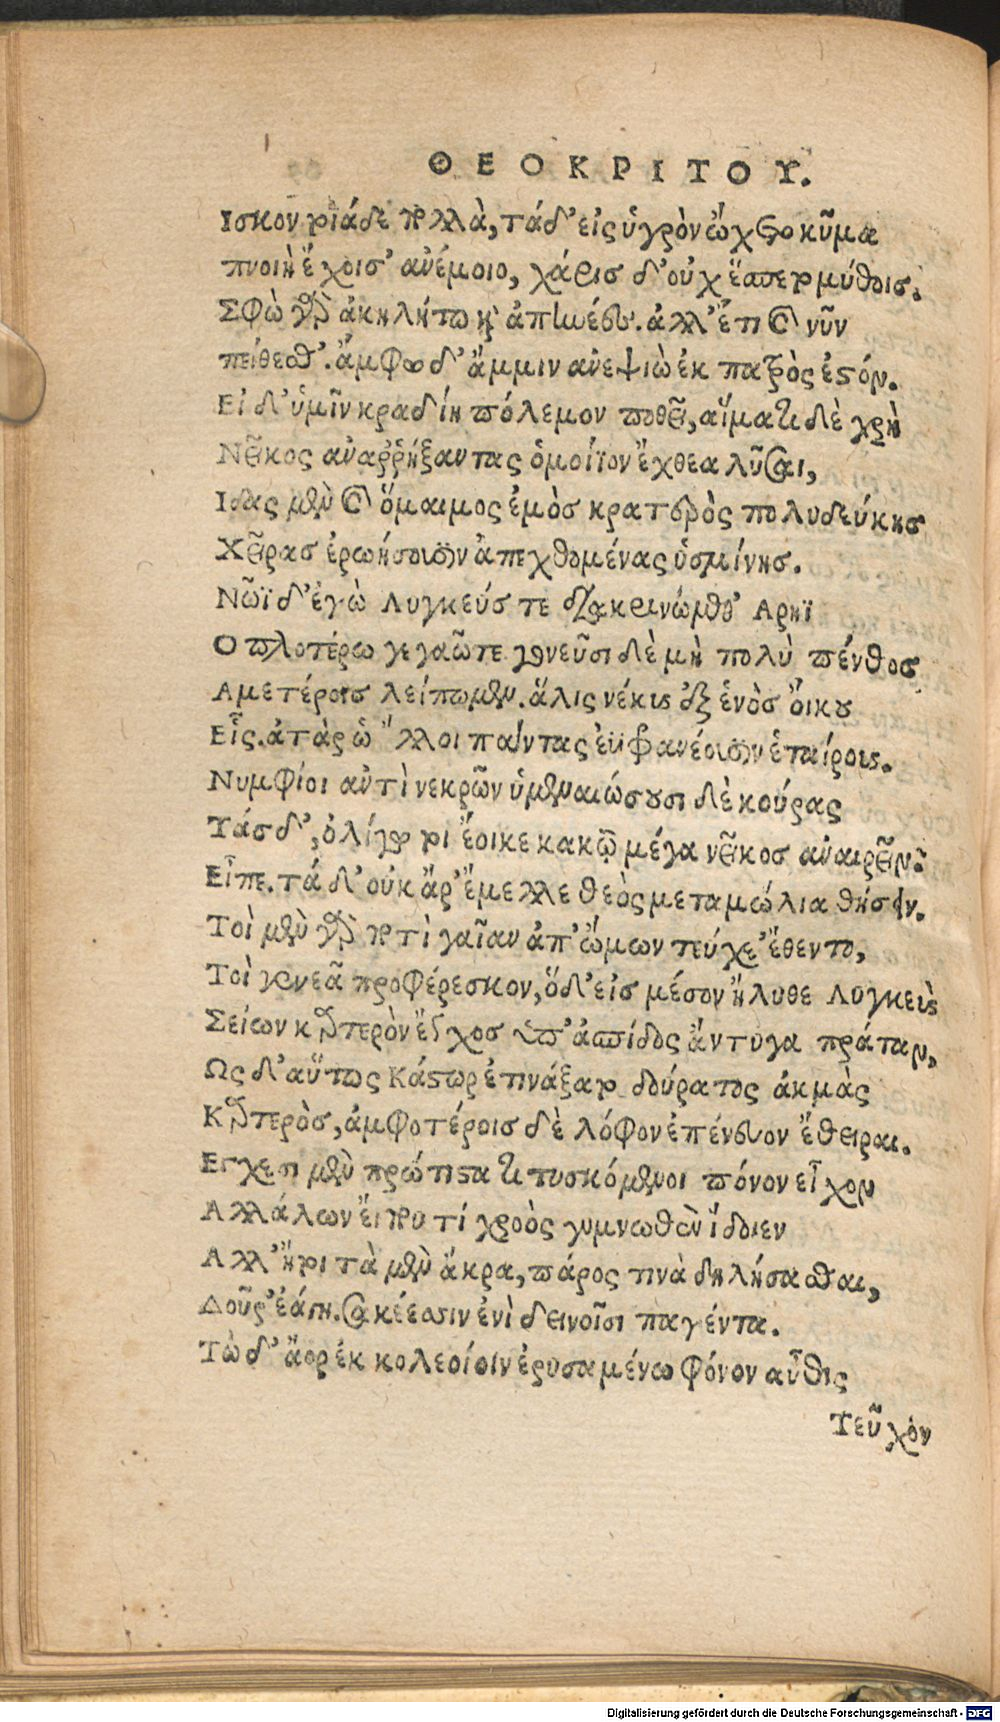 ΘΕΟΚΡΙΤΟΥ.
Ισκον τοιάδε πολλὰ, τάδ' εἰς ὑγρὸν ᾤχετο κῦμα
πνοιὴ ἔχοισ' ἀνέμοιο, χάρισ δ' οὐχ ἕσπετο μύθοισ.
Σφὼ γὰρ ἀκηλήτω καὶ ἀπηνέες. ἀλλ' ἔτι καὶ νῦν
πείθεσθ'. ἄμφω δ' ἄμμιν ἀνεψιὼ ἐκ πατρὸς ἐστόν.
Εἰ δ' ὑμῖν κραδίη πόλεμον ποθεῖ, αἵματι δὲ χρὴ
Νεῖκος ἀναῤῥήξαντας ὁμοίϊον ἔχθεα λῦσαι,
Ιδας μὲν καὶ ὅμαιμος ἐμὸσ κρατερὸς πολυδεύκησ
Χεῖρασ ἐρωήσουσιν ἀπεχθομένας ὑσμίνησ.
Νῶϊ δ' ἐγὼ Λυγκεύς τε διακρινώμεθ' Αρηϊ
Οπλοτέρω γεγαῶτε γονεῦσι δὲ μὴ πολὺ πένθοσ
Αμετέροισ λείπωμεν. ἅλις νέκυς ἐξ ἑνὸσ οἴκου
Εἷς. ἀτὰρ ὧ λλοι πάντας ἐϋφρανέουσιν ἑταίρους.
Νυμφίοι ἀντὶ νεκρῶν ὑμεναιώσουσι δὲ κούρας
Τάσδ', ὀλίγῳ τοι ἔοικε κακῷ μέγα νεῖκοσ ἀναιρεῖν.
Εἶπε. τά δ' οὐκ ἄρ' ἔμελλε θεὸς μεταμώλια θήσειν.
Τοὶ μὲν γὰρ ποτὶ γαῖαν ἀπ' ὤμων τεύχε' ἔθεντο,
Τοὶ γενεᾶ προφέρεσκον, ὅδ' εἰσ μέσον ἤλυθε Λυγκεὺς
Σείων καρτερὸν ἔγχοσ ὑπ' ἀσπίδος ἄντυγα πράταν,
Ως δ' αὔτως Κάστωρ ἐτινάξατο δούρατος ἀκμὰς
Καρτερὸς, ἀμφοτέροισ δὲ λόφον ἐπένευον ἔθειραι.
Εγχεσι μὲν πρώτιστα τιτυσκόμενοι πόνον εἶχον
Αλλάλων εἴ που τί χροὸς γυμνωθὲν ἴδοιεν
Αλλ' ἤτοι τὰ μὲν ἄκρα, πάρος τινὰ δηλήσασθαι,
Δοῦρ' ἐάγη. σακέεσσιν ἐνὶ δεινοῖσι παγέντα.
Τὼ δ' ἄορ ἐκ κολεοίοιν ἐρυσαμένω φόνον αὖθις
Τεῦχον
Digitalisierung gefördert durch die Deutsche Forschungsgemeinschaft - DFG